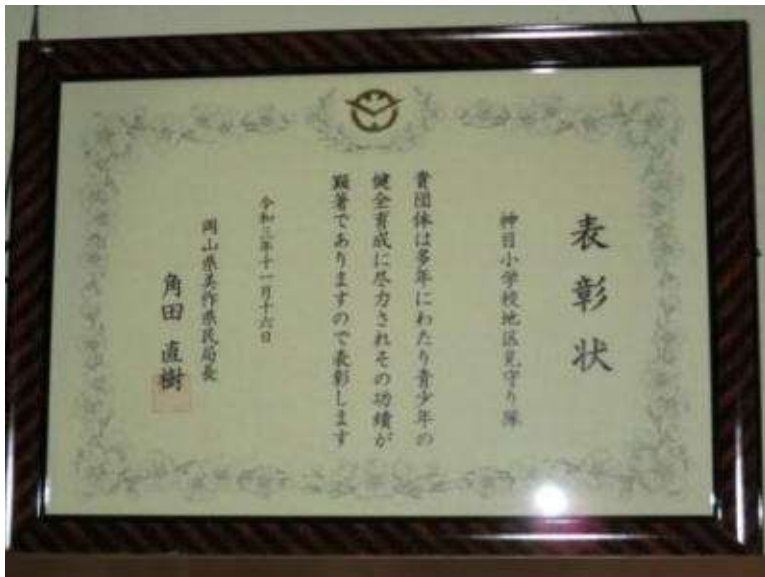 表彰状
神目小学校地区見守り隊
貴団体は多年にわたり青少年の
健全育成に尽力されその功績が
顕著でありますので表彰します
令和三年十一月十六日
岡山県美作県民局長
角田直樹